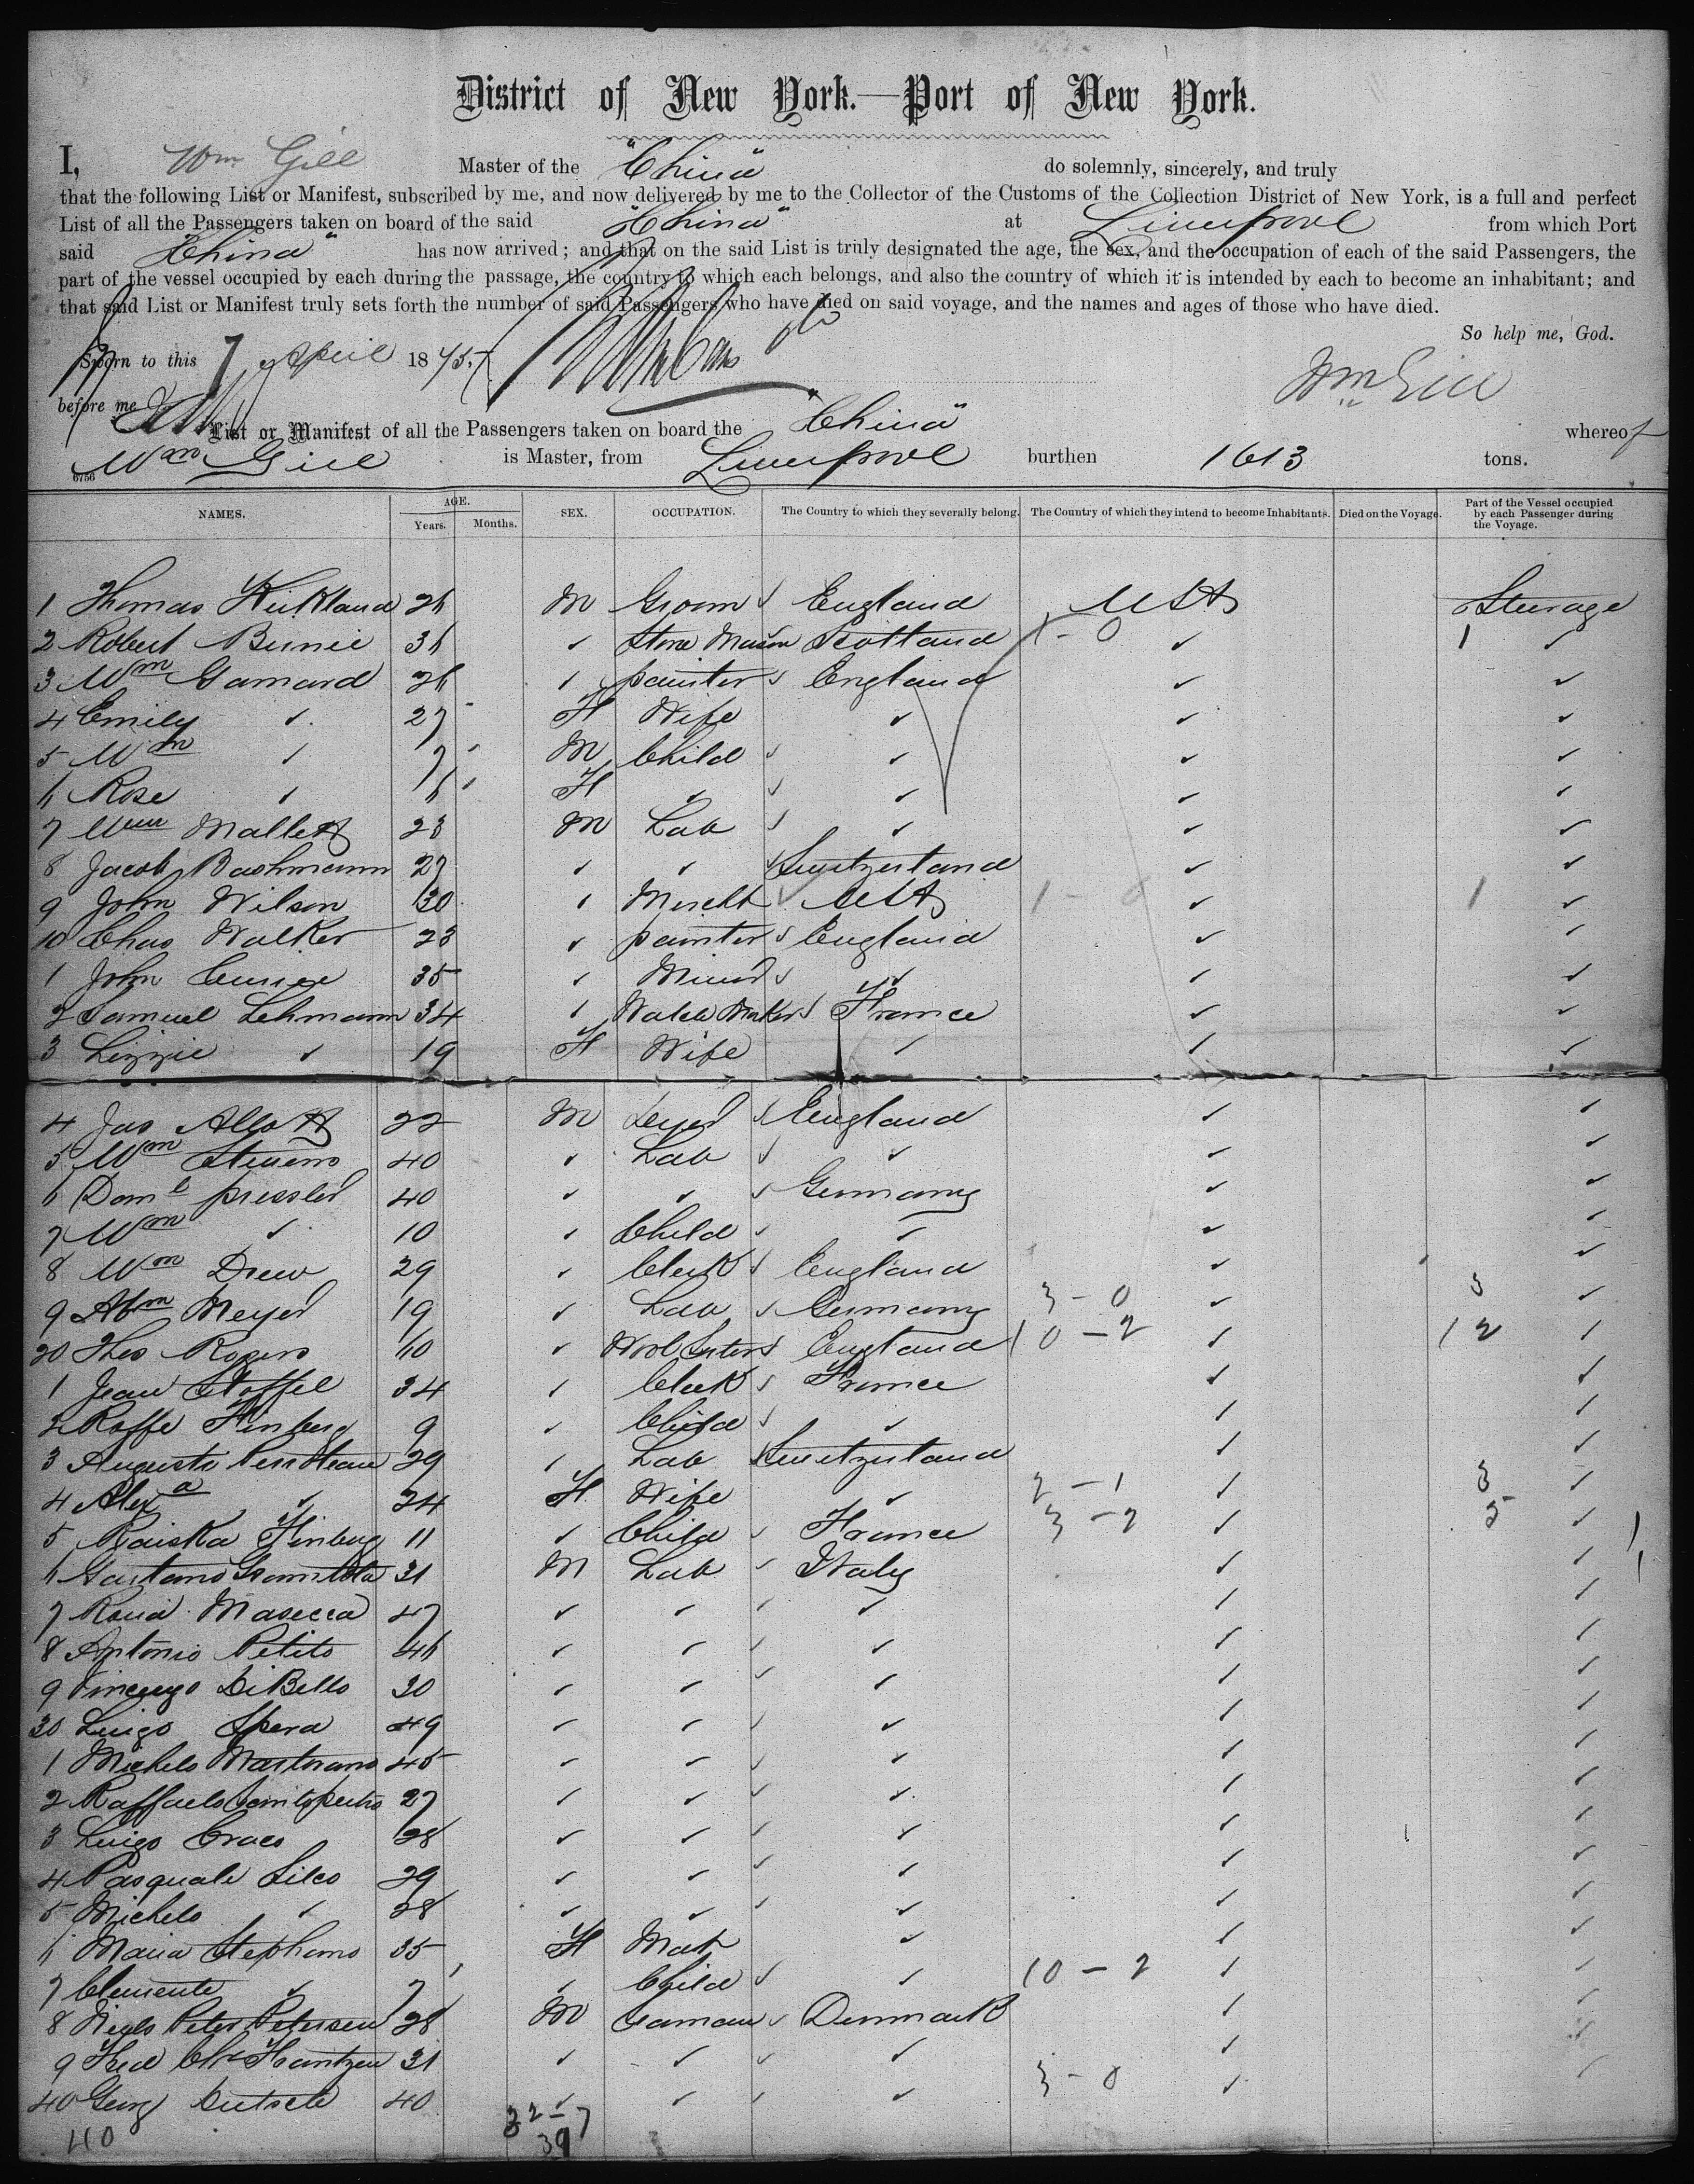 District of New York.—Port of New York.
I, Wm Gill Master of the "China" do solemnly, sincerely, and truly
that the following List or Manifest, subscribed by me, and now delivered by me to the Collector of the Customs of the Collection District of New York, is a full and perfect
List of all the Passengers taken on board of the said "China" at Liverpool from which Port
said "China" has now arrived; and that on the said List is truly designated the age, the sex, and the occupation of each of the said Passengers, the
part of the vessel occupied by each during the passage, the country to which each belongs, and also the country of which it is intended by each to become an inhabitant; and
that said List or Manifest truly sets forth the number of said Passengers who have died on said voyage, and the names and ages of those who have died.
So help me, God.
Sworn to this 7 April 1875
Wm Gill
before me
List or Manifest of all the Passengers taken on board the "China" whereof
Wm Gill is Master, from Liverpool burthen 1613 tons.
6756
NAMES. AGE. Years. Months. SEX. OCCUPATION. The Country to which they severally belong. The Country of which they intend to become Inhabitants. Died on the Voyage. Part of the Vessel occupied by each Passenger during the Voyage.
1 Thomas Kirkland 26 M Groom England USA Steerage
2 Robert 36 ✓ Stone Mason Scotland 1-0 ✓ 1 ✓
3 Wm Gamard 26 ✓ painter England ✓ ✓
4 Emily ✓ 27 F Wife ✓ ✓ ✓
5 Wm ✓ 7 M Child ✓ ✓ ✓
6 Rose ✓ 6 F ✓ ✓ ✓ ✓
7 Wm Mallett 23 M Lab ✓ ✓ ✓
8 Jacob Bachmann 27 ✓ ✓ Switzerland ✓ ✓
9 John Wilson 30 ✓ Mercht USA 1- ✓ 1 ✓
10 Chas Walker 23 ✓ painter England ✓ ✓
1 John 35 ✓ Miner ✓ ✓ ✓
2 Samuel Lehmann 34 ✓ Watch Maker France ✓ ✓
3 Lizzie ✓ 19 F Wife ✓ ✓ ✓
4 Jas Allott 22 M Dyer England ✓ ✓
5 Wm Stevens 40 ✓ Lab ✓ ✓ ✓
6 Danl pressler 40 ✓ ✓ Germany ✓ ✓
7 Wm ✓ 10 ✓ Child ✓ ✓ ✓
8 Wm Drew 29 ✓ Clerk England ✓ ✓
9 Abm Meyer 19 ✓ Lab Germany 3-0 ✓ 3 ✓
20 Thos Rogers 40 ✓ Wool Sorter England 10-2 ✓ 12 ✓
1 Jean Stoffel 34 ✓ Clerk France ✓ ✓
2 Roffe Finberg 9 ✓ Child ✓ ✓ ✓
3 Auguste 29 ✓ Lab Switzerland ✓ ✓
4 Alexa ✓ 24 F Wife ✓ 2-1 ✓ 3 ✓
5 Raiska Finberg 11 ✓ Child France 3-2 ✓ 5 ✓
6 Gaetano 31 M Lab Italy ✓ ✓
7 Masecca 47 ✓ ✓ ✓ ✓ ✓
8 Antonio Petito 46 ✓ ✓ ✓ ✓ ✓
9 Vincenzo DiBello 30 ✓ ✓ ✓ ✓ ✓
30 Luigo Spera 49 ✓ ✓ ✓ ✓ ✓
1 Michelo Martorano 45 ✓ ✓ ✓ ✓ ✓
2 Raffaelo 27 ✓ ✓ ✓ ✓ ✓
3 Luigo Craco 28 ✓ ✓ ✓ ✓ ✓
4 Pasquale Lileo 29 ✓ ✓ ✓ ✓ ✓
5 Michelo ✓ 28 ✓ ✓ ✓ ✓ ✓
6 Maria Stephano 35 F Mat ✓ ✓ ✓
7 Clemente ✓ 7 ✓ Child ✓ 10-2 ✓ ✓
8 Niels Peter Petersen 28 M Seaman Denmark ✓ ✓
9 Fred Chr Frantzen 31 ✓ ✓ ✓ ✓ ✓
40 Georg 40 ✓ ✓ ✓ 3-0 ✓
40 32-7
39